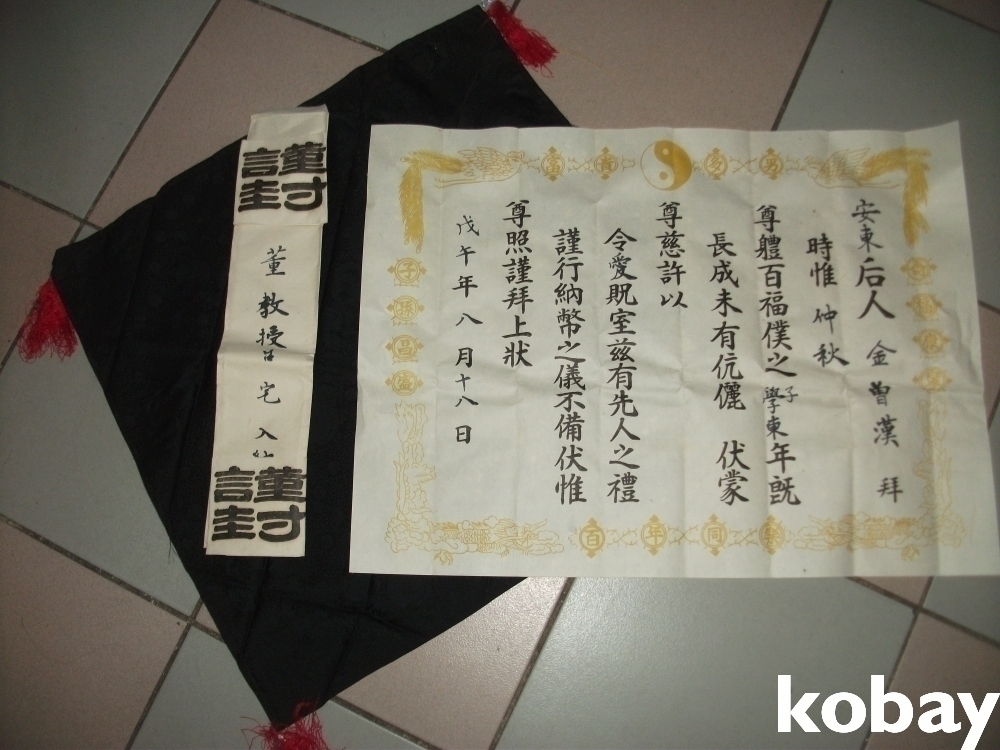 安東后人 金曾漢 拜
時惟 仲秋
尊體百福僕之子學東年旣
長成未有伉儷 伏蒙
尊慈許以
令愛貺室玆有先人之禮
謹行納幣之儀不備伏惟
尊照謹拜上狀
戊午年八月十八日
富貴多男
子孫昌盛
百年同樂
謹封
董教授 宅 入
謹封
kobay